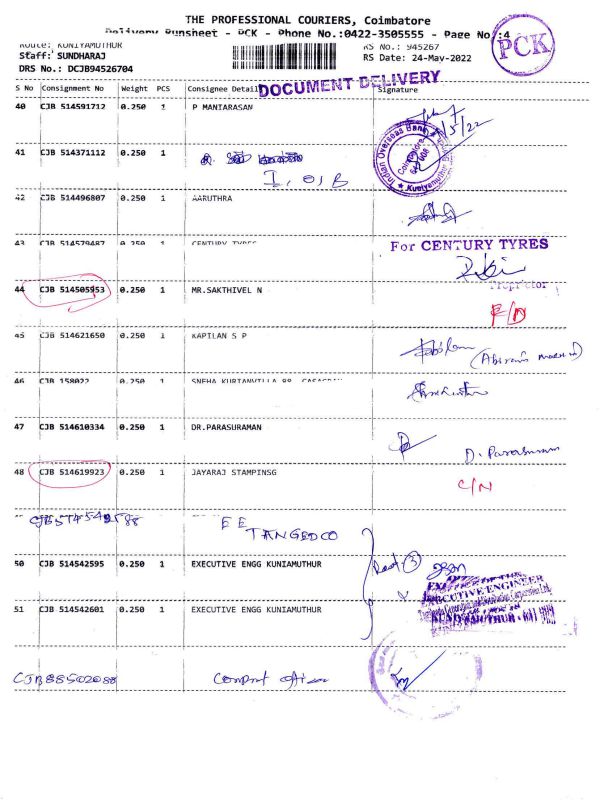 THE PROFESSIONAL COURIERS, Coimbatore
Delivery Runsheet - PCK - Phone No.:0422-3505555 - Page No.:4
PCK
Route: KUNIYAMUTHUR RS No.: 945267
Staff: SUNDHARAJ RS Date: 24-May-2022
DRS No.: DCJB94526704
DOCUMENT DELIVERY
S No Consignment No Weight PCS Consignee Detail Signature
40 CJB 514591712 0.250 1 P MANIARASAN
5/22
Indian Overseas Bank
Coimbatore
41 CJB 514371112 0.250 1
I, OIB
42 CJB 514496807 0.250 1 AARUTHRA
43 CJB 514579487 0.250 1 CENTURY TYRES
For CENTURY TYRES
Proprietor
44 CJB 514505953 0.250 1 MR.SAKTHIVEL N
F/D
45 CJB 514621650 0.250 1 KAPILAN S P
46 CJB 158022 0.250 1 SNEHA KURIANVILLA 88, CASAGRAN
47 CJB 514610334 0.250 1 DR.PARASURAMAN
D. Parasuraman
48 CJB 514619923 0.250 1 JAYARAJ STAMPINSG
C/N
CJB514542588 EE
TANGEDCO
50 CJB 514542595 0.250 1 EXECUTIVE ENGG KUNIAMUTHUR
3
EXECUTIVE ENGINEER
51 CJB 514542601 0.250 1 EXECUTIVE ENGG KUNIAMUTHUR
KUNIYAMUTHUR
CJB88502088